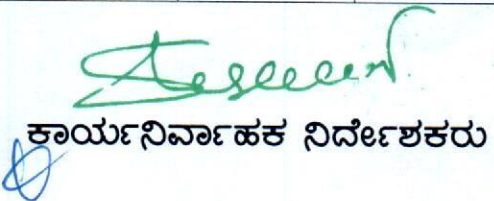 ಕಾರ್ಯನಿರ್ವಾಹಕ ನಿರ್ದೇಶಕರು